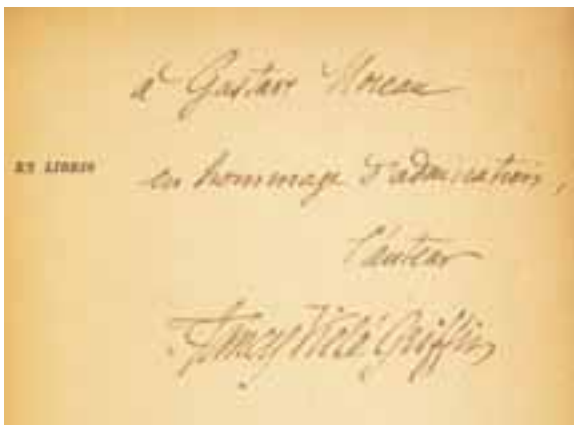 à Gustave Moreau
EX LIBRIS
en hommage d'admiration,
l'auteur
Francis Vielé Griffin